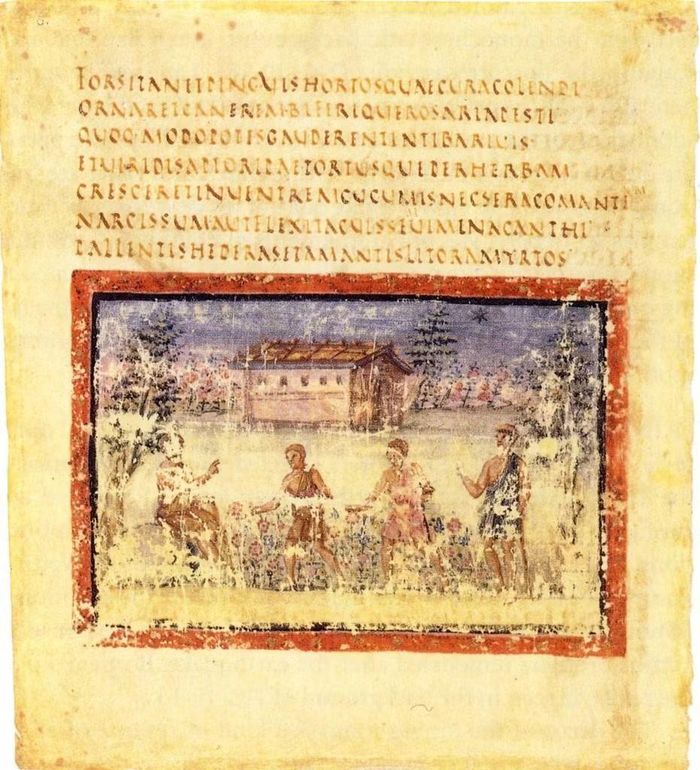 FORSITANETPINGUISHORTOSQUAECURACOLENDI
ORNARETCANEREMBIFERIQUEROSARIAPESTI
QUOQ·MODOPOTISGAUDERENTINTIBARIUIS
ETUIRIDISAPIORIPAETORTUSQUEPERHERBAM
CRESCERETINUENTREMCUCUMISNECSERACOMANTEM
NARCISSUMAUTFLEXITACUISSEUIMINACANTHI
PALLENTISHEDERASETAMANTISLITORAMYRTOS